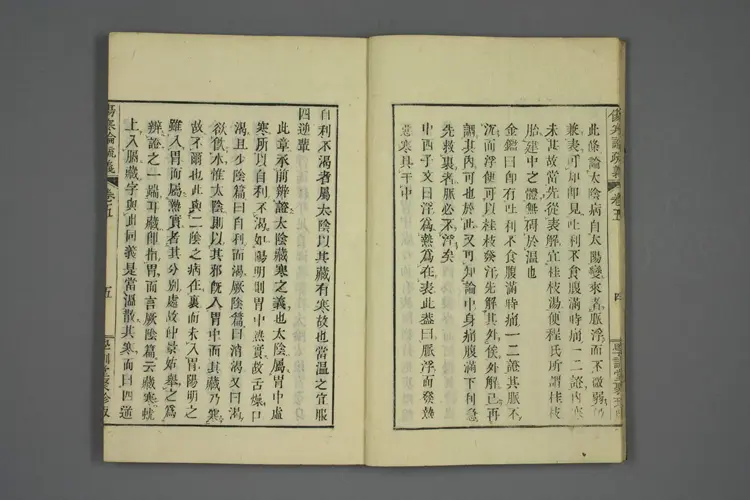 傷寒論疏義 卷五
四
此條論太陰病自太陽變來者脈浮而不微弱乃
兼表可知卽見吐利不食腹滿時痛一二證內寒
未甚故當先從表解宜桂枝湯便程氏所謂桂枝
胎建中之體無碍於溫也
金鑑曰卽有吐利不食腹滿時痛一二證其脈不
沉而浮便可以桂枝發汗先解其外俟外解已再
調其內可也於此又可知論中身痛腹滿下利急
先救裏者脈必不浮矣
中西子文曰浮爲熱爲在表此蓋曰脈浮而發熱
惡寒具于中
自利不渴者屬太陰以其藏有寒故也當溫之宜服
四逆輩
此章承前辨證太陰藏寒之義也太陰屬胃中虛
寒所以自利不渴如陽明則胃中熱實故舌燥口
渴且少陰篇曰自利而渴厥陰篇曰消渴又曰渴
欲飮水惟太陰則以其邪旣入胃中而其藏乃寒
故不爾也此與二陰之病在裏而未入胃陽明之
雖入胃而屬熱實者其分別處故仲景始擧之爲
辨證之一端耳藏卽指胃而言厥陰篇云藏寒蚘
上入膈藏字與此同義是當溫散其寒而曰四逆
傷寒論疏義 卷五
五